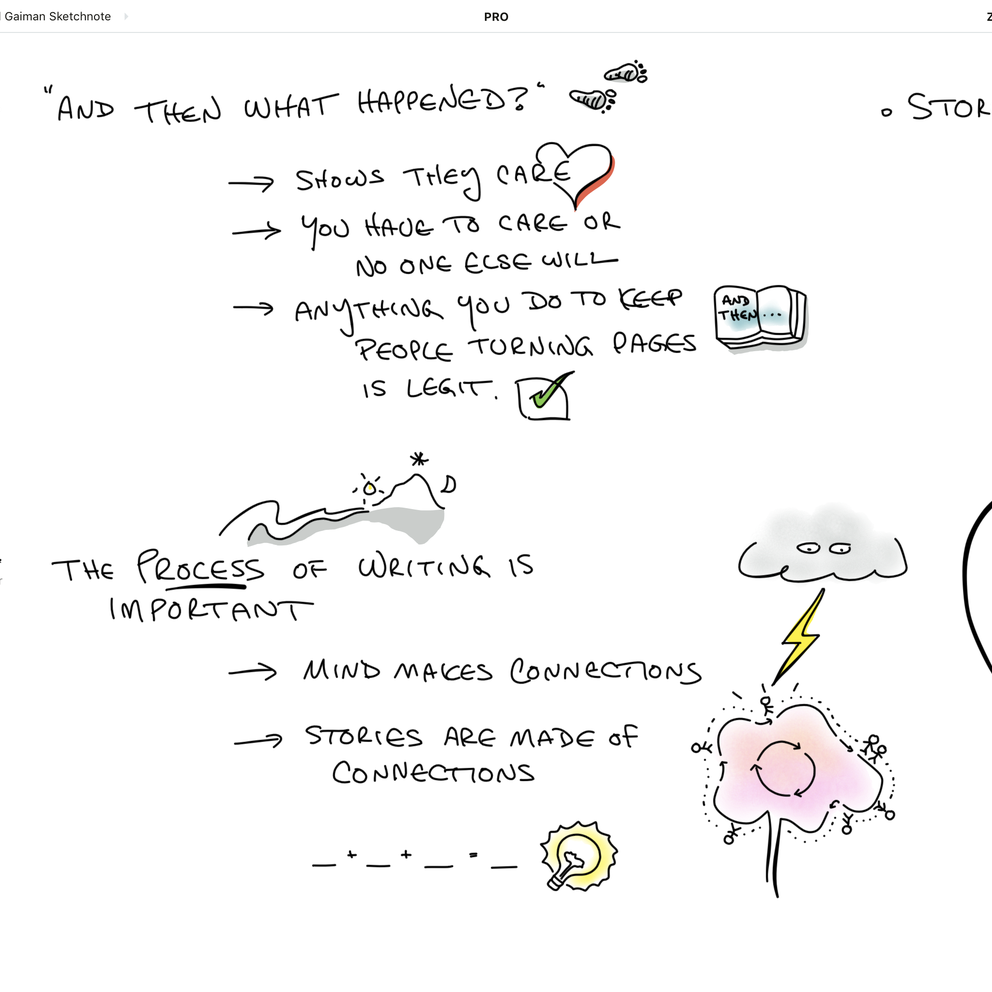 Gaiman Sketchnote
PRO
"AND THEN WHAT HAPPENED?"
• STOR
→ SHOWS THEY CARE
→ YOU HAVE TO CARE OR
NO ONE ELSE WILL
→ ANYTHING YOU DO TO KEEP
PEOPLE TURNING PAGES
IS LEGIT.
AND
THEN ...
THE PROCESS OF WRITING IS
IMPORTANT
→ MIND MAKES CONNECTIONS
→ STORIES ARE MADE OF
CONNECTIONS
_ + _ + _ = _